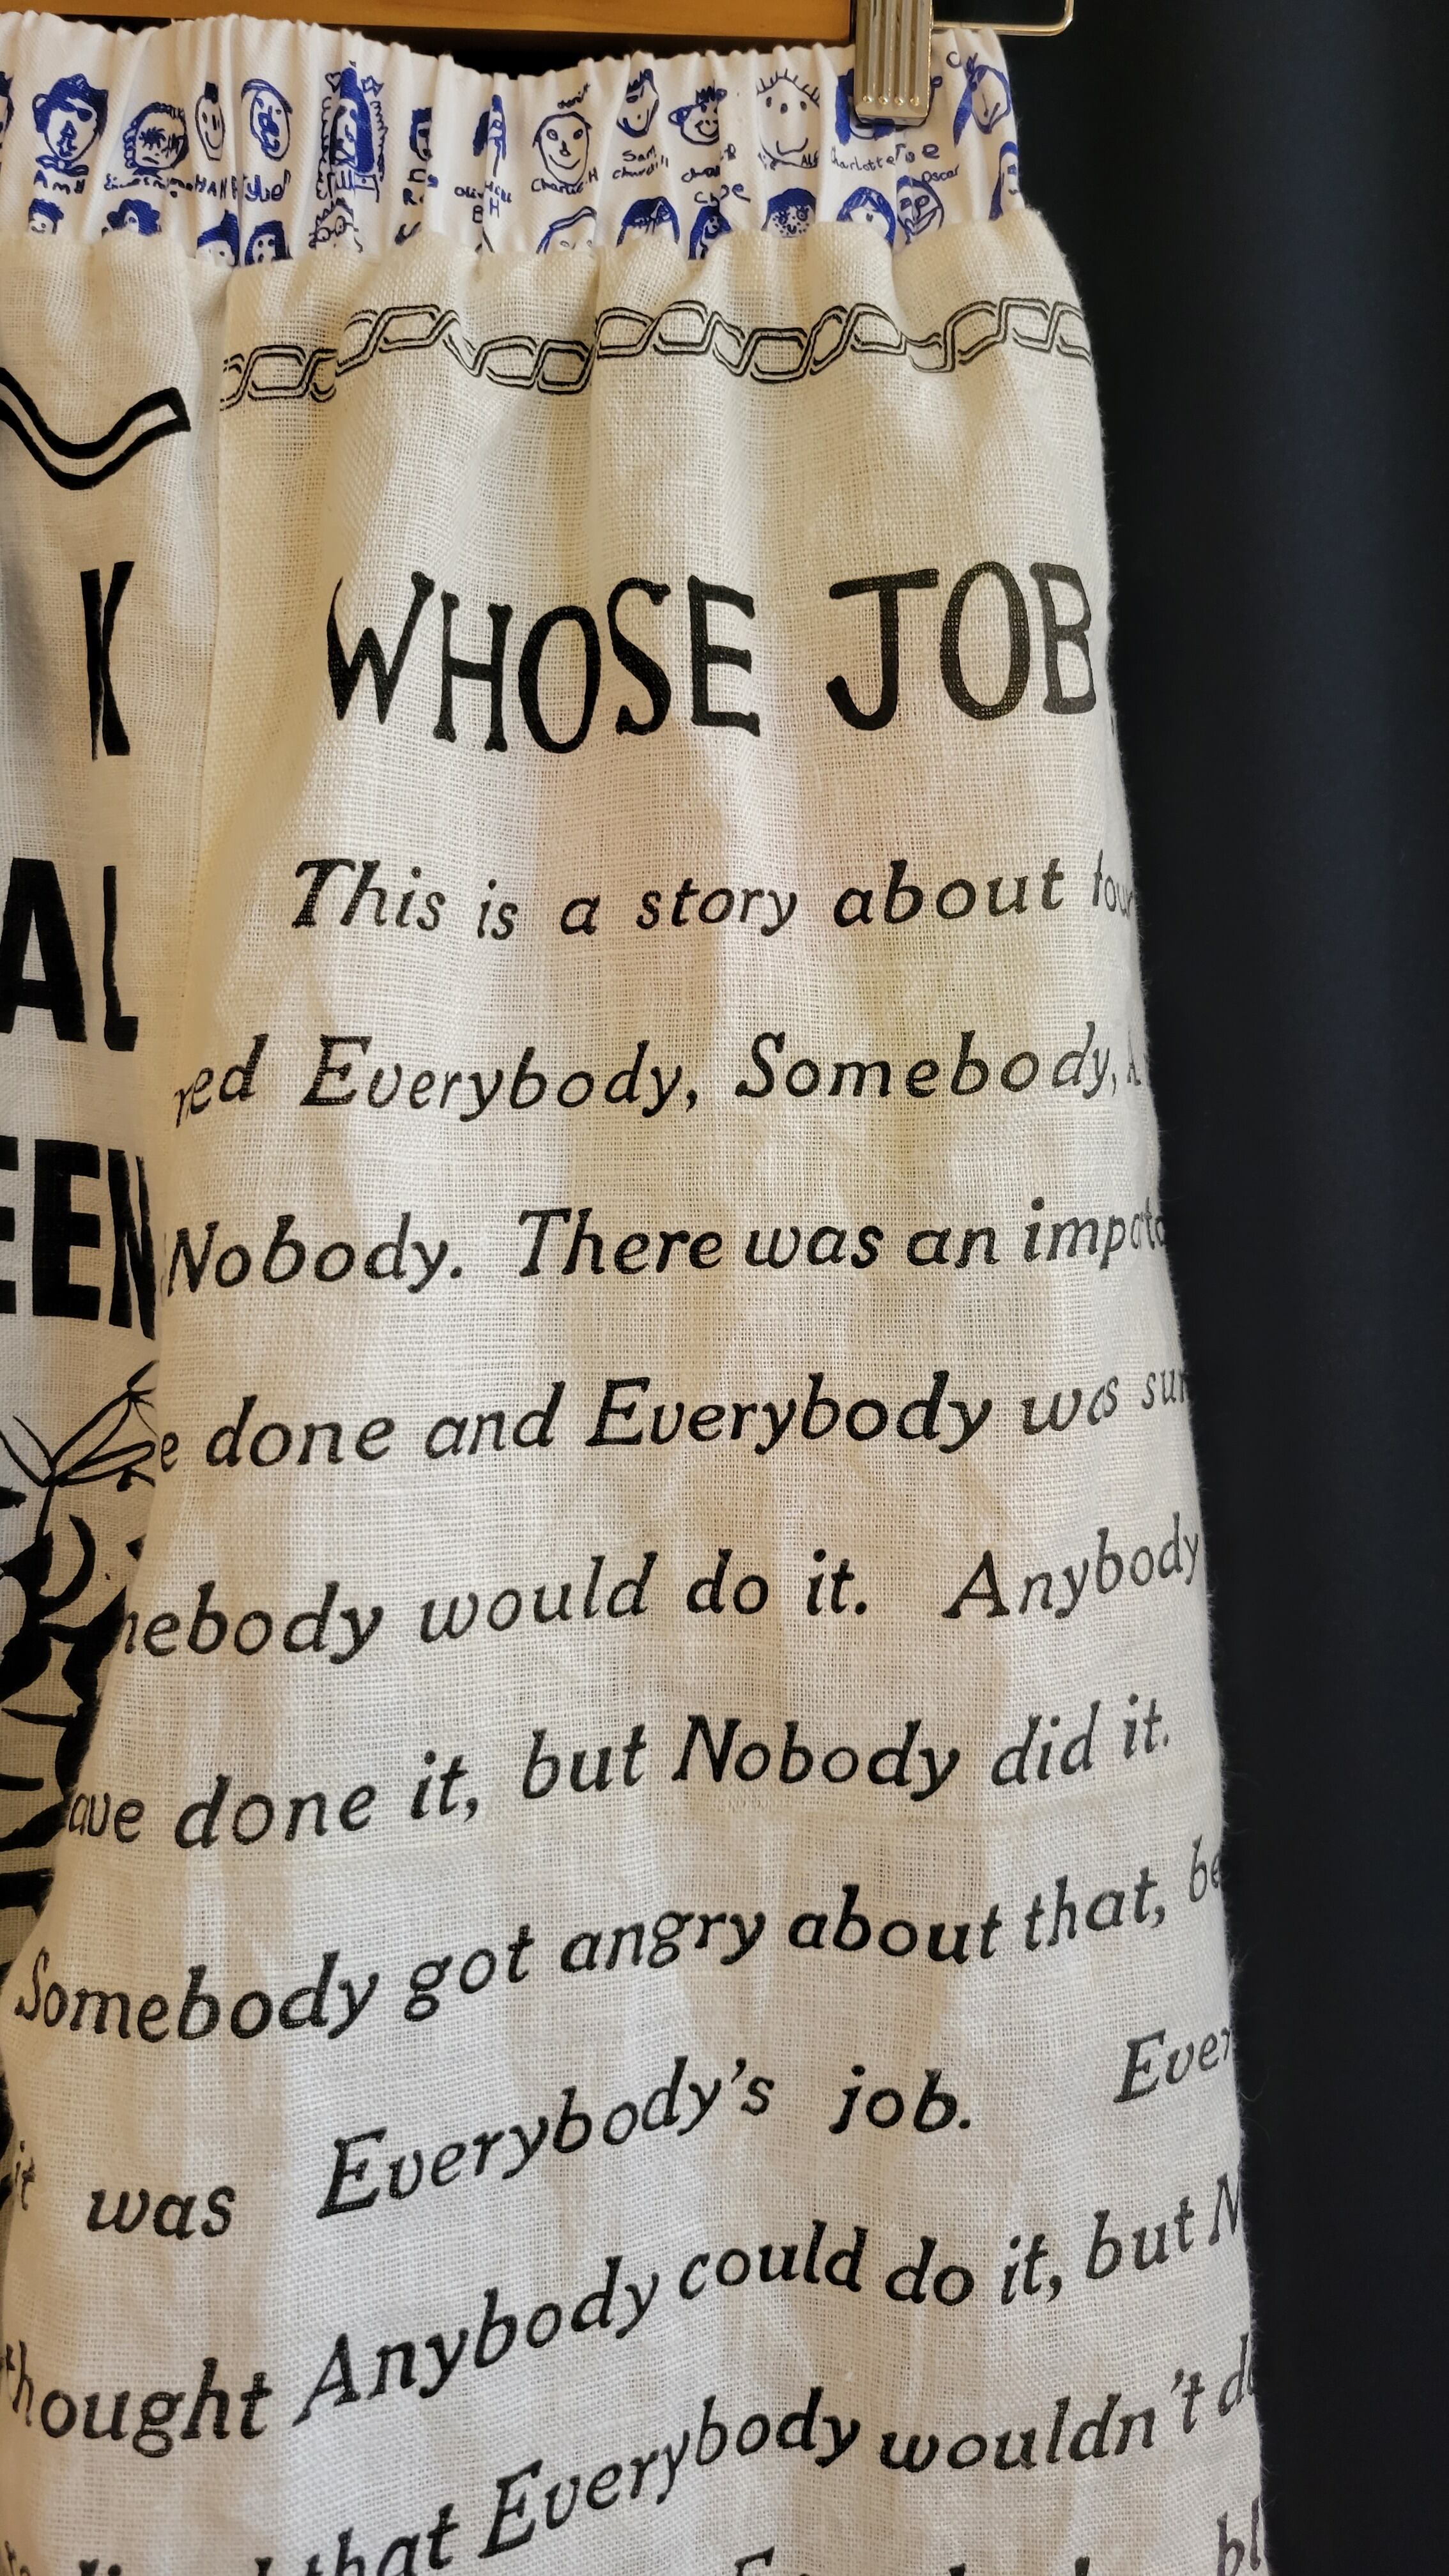 Amy
Charlie H
Sam
Charlotte
Oscar
K
AL
EEN
WHOSE JOB
This is a story about four
red Everybody, Somebody, A
Nobody. There was an importa
e done and Everybody was sur
nebody would do it. Anybody
ave done it, but Nobody did it.
Somebody got angry about that, be
it was Everybody's job. Ever
thought Anybody could do it, but N
that Everybody wouldn't do
bl